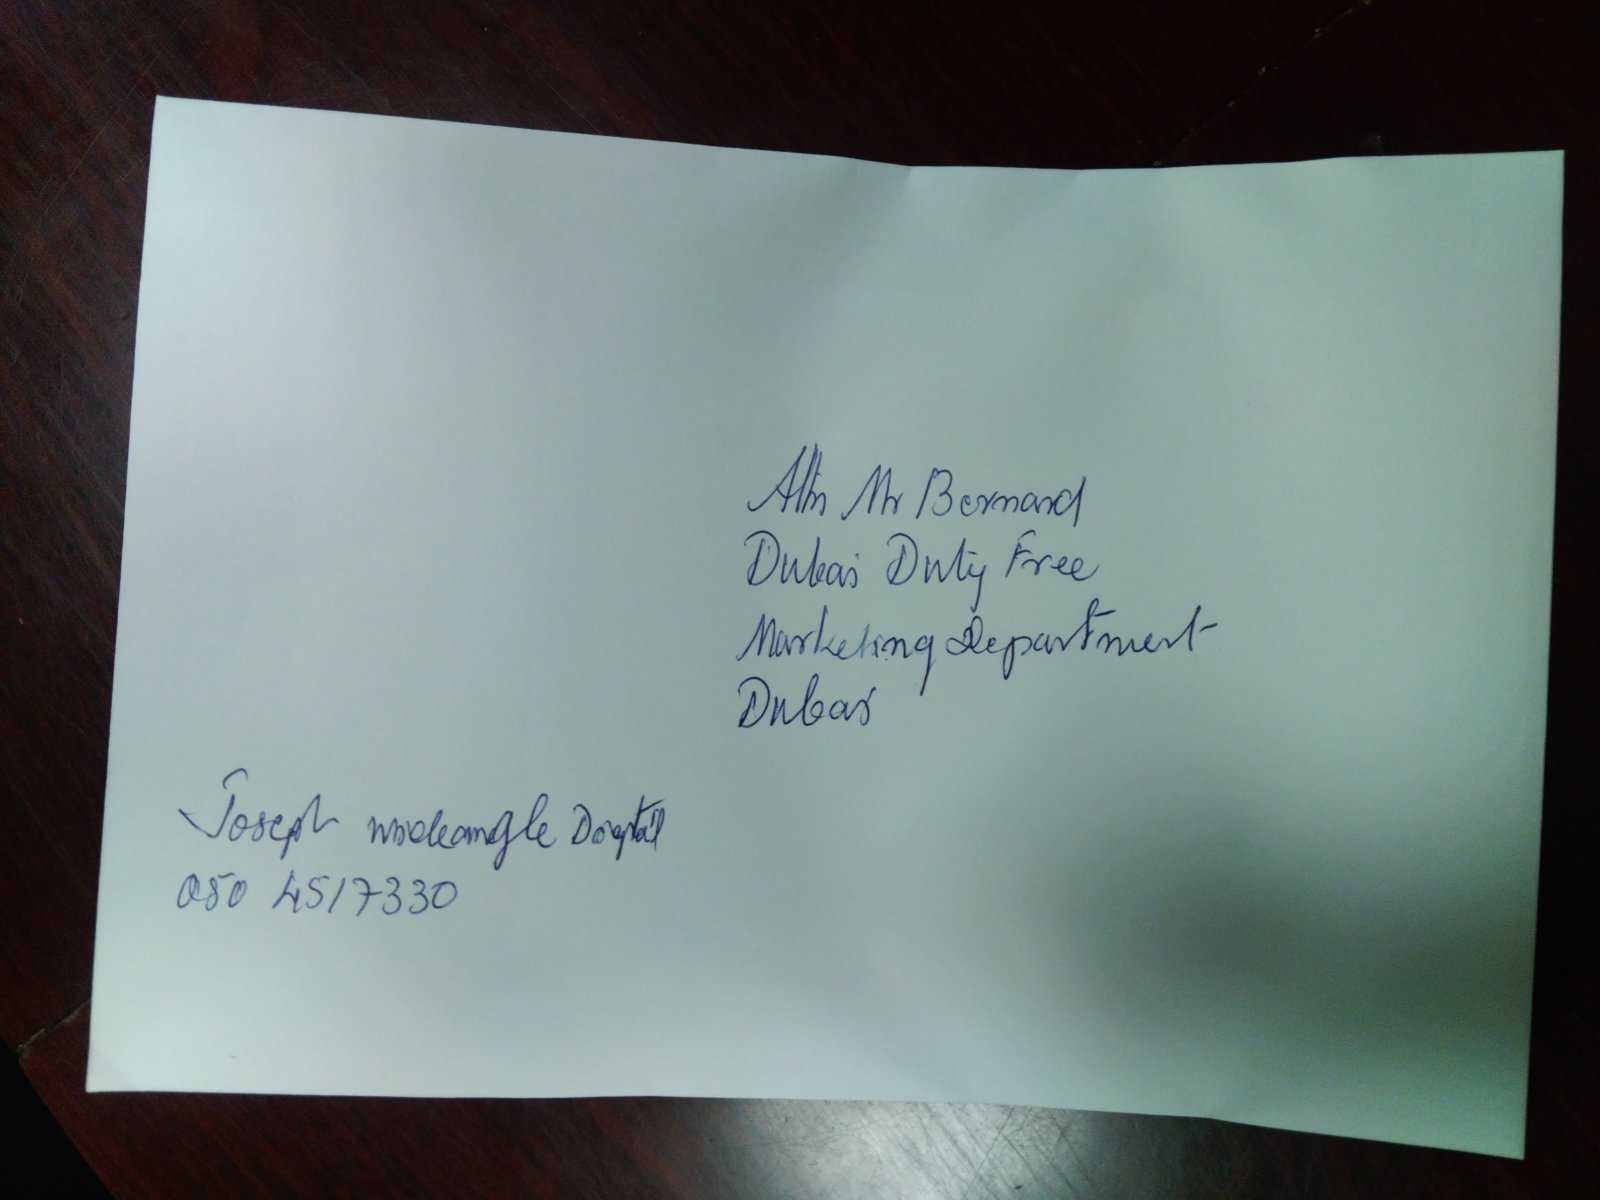 Attn Mr Bernard
Dubai Duty Free
Marketing Department
Dubai
Joseph wideangle
050 4517330